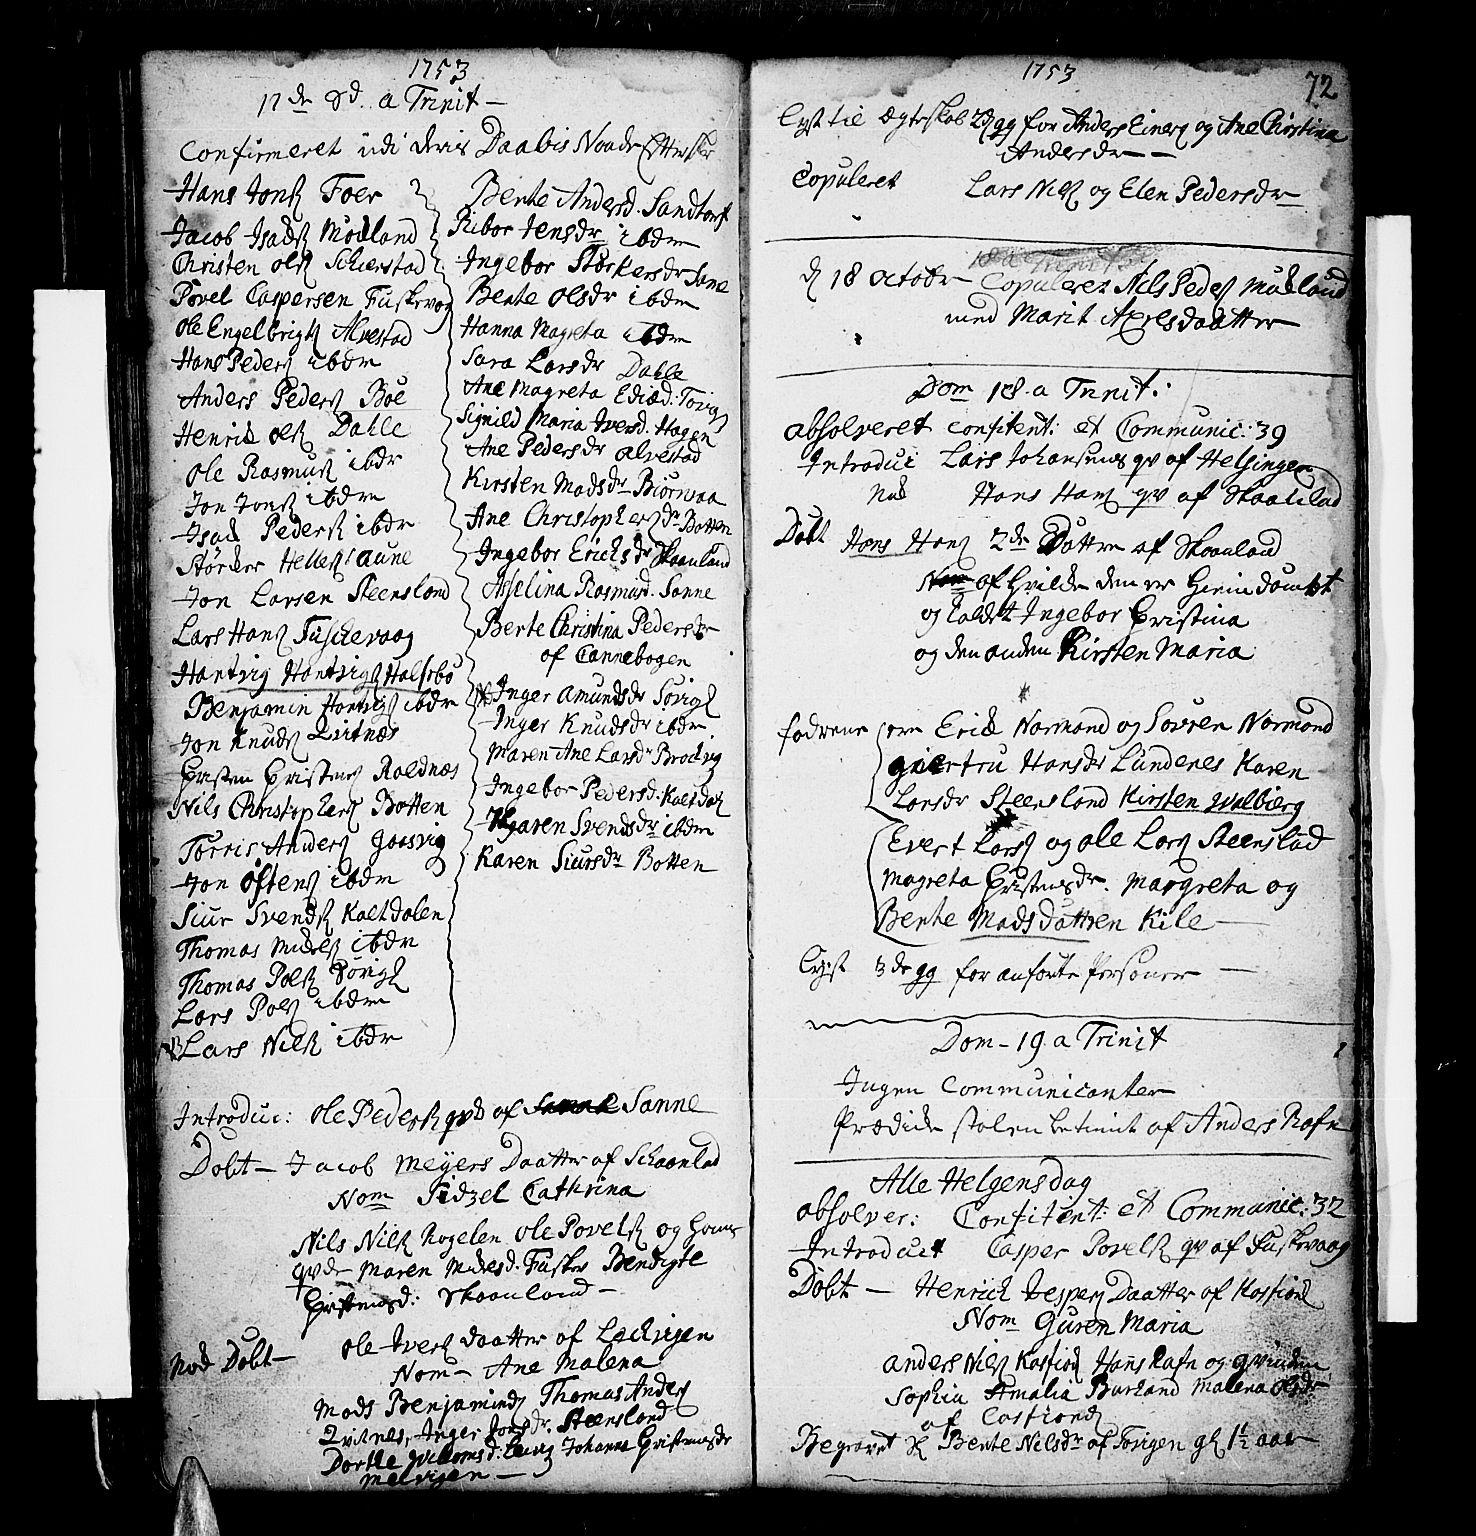 1753
17de Sd. a Trinit —
Confirmeret udi deris Daabis Naade
Hans Jonss Foer
Jacob Isachss Modland
Christen Olss Schierstad
Povel Caspersen Fuskevog
Ole Engelbrigtss Alvestad
Hans Pederss ibdm
Anders Pederss Boe
Henrik Olss Dahle
Ole Rasmuss ibdm
Jon Jonss ibdm
Isak Pederss ibdm
Størker Helless aune
Jon Larsen Steensland
Lars Hanss Fuschevaag
Hantvig Hantvigss Halsebo
Benjamin Hantvigss ibdm
Jon Knudss Qvitnæs
Christen Christenss Roldnæs
Nils Christopherss Botten
Torris Anderss Gaasvig
Jon Østenss ibdm
Siur Svendss Kaeldalen
Thomas Mickelss ibdm
Thomas Polss Sørigss
Lars Polss ibdm
Lars Nilss ibdm
Bente Andersd. Sandtorf
Ribor Jensdr ibdm
Ingebor Størkersdr Sane
Bente Olsdr ibdm
Hanna Magreta ibdm
Sara Larsdr Dahle
Ane Magreta Torig
Signild Maria Iversd. Hagen
Ane Pedersdr alvestad
Kirsten Madsdr Biørnraa
Ane Christophersdr Botten
Ingebor Erichsdr Skaanland
Asselina Rasmusd. Sanne
Berte Christina Pedersdr
of Cannebogen
Inger Amundsdr Sørigss
Inger Knudsdr ibdm
Maren Ane Larsdr Brochvig
Ingebor Pedersd. Kaeldal
Karen Svendsdr ibdm
Karen Siursdr Botten
Introduc: Ole Pederss qvd af Sanne
Dobt — Jacob Meyers Daatter af Schaanlad
Nom Sidzel Cathrina
Nils Nilss Rogelen Ole Povelss og
qvdr Maren Mikelsd. Fuskev Bendigte
Christensd: Skaanland —
Nok Dobt — Ole Iverss daatter af Lechvigen
Nom — Ane Malena
Mads Benjaminss Thomas Anderss
Qvitnes, Inger Jonsdr. Steensland
Dorthe Johanna Christensdr
Melvigen —
1753
72
Lyst til Ægteskab 2dgg for Anders Einerss og Ane Christina
Andersdr —
Copuleret Lars Nilss og Elen Pedersdr
d 18 octobr Copuleret Nils Pederss Mudland
med Marit Axelsdaatter
Dom 18. a Trinit:
absolveret confitent: et Communic: 39
Introduc Lars Johansens qv af Helsingen
Nok Hans Hanss qv af Skaanlad
Dobt Hans Hanss 2de Dottre af Skaanland
Nom af hvilke den ene hiemdøubt
og kaldet Ingebor Christina
og den anden Kirsten Maria
fadrene ere Erik Normand og Sørren Normand
giertru Hansdr Lundenes Karen
Larsdr Steensland Kirsten Walbierg
Evert Larss og Ole Larss Steenslad
Magreta Christensdr. Margreta og
Bente Madsdatter Kile —
Lyst 3de gg for anførte Personer —
Dom — 19. a Trinit
Ingen Communicanter
Prædike stolen betient af Anders Rafn
Alle Helgens dag
absolver: Confitent: et Communic: 32
Introduct Casper Povelss qv af Fuskevaag
Dobt — Henrich Jesperss Daatter af Kasfiord
Nom Guren Maria
anders Nilss Kasfiord Hans Rafn og qvinden
Sophia Amalia Burhand Malena Olsdr
af Casfiord
Begravet Bente Nilsdr af Torigen gl 1½ aar